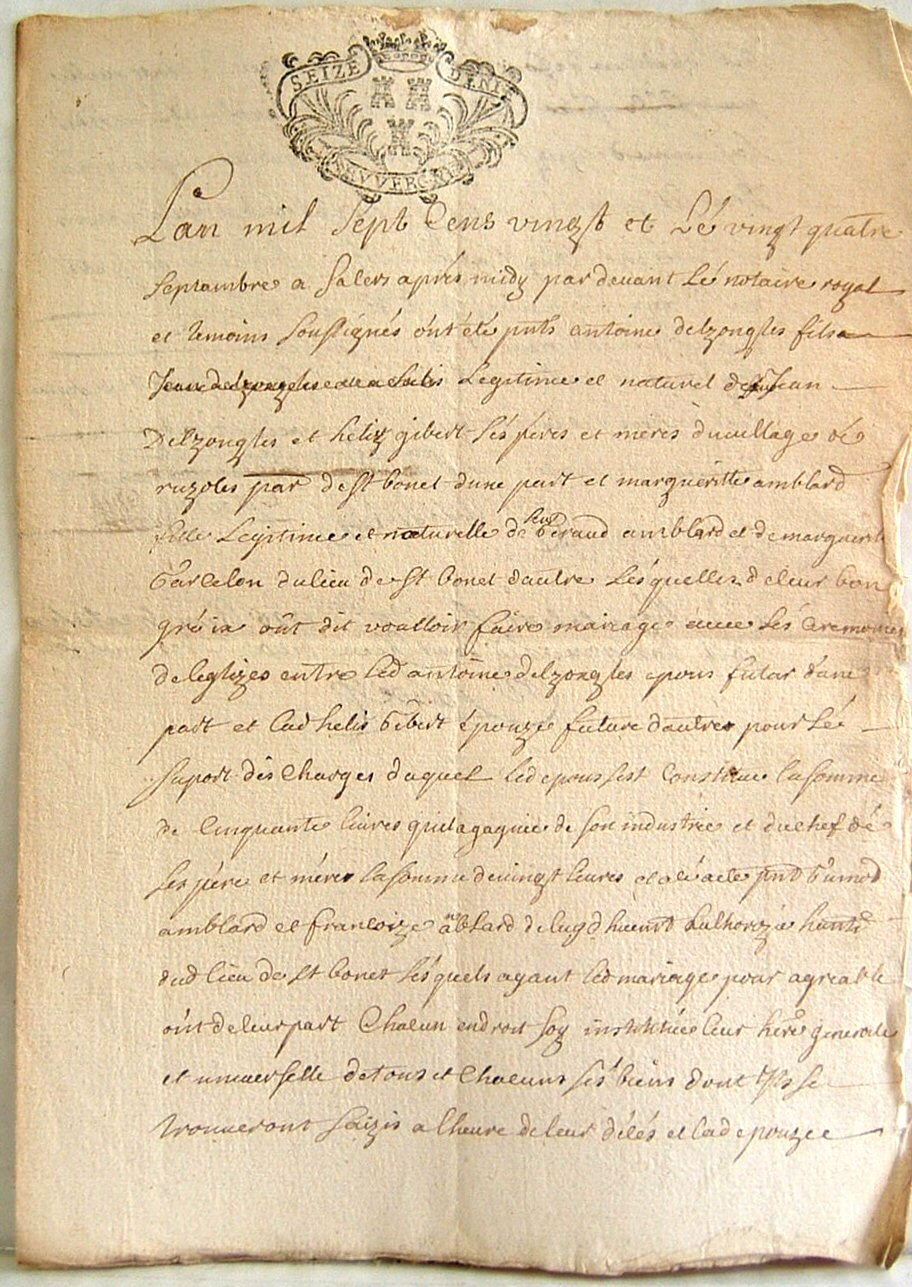 SEIZE DENI
AVVERGNE
Lan mil sept Cens vingt et Lé vingt quatre
septambre a salers aprés midy par devant Lé notaire royal
et temoins soussignés ont été pnts antoine delzongles fils a
Legitime et naturel de feu Jean
Delzongles et heliz gibert sés péres et meres du village dé
ruzolés par de st bonet dune part et marguéritte amblard
fille Legitime et naturelle de feu Béraud amblard et de marguerit
Barcelon du lieu de st bonet dautre Lésquelles de leur bon
gré ont dit voulloir faire mariage avec Lés Cremonies
de leglizes entre led antoine delzongles epous futur dune
part et lad helis Gibert épouze future dautre pour Lé
suport dés Charges duquel led epous sest Constitue la somme
de Cinquante livres quil a gagnée de son industrie et du chef dé
ses pére et mére la somme de vingt livres et a lé acte pnt
amblard et francoize amblard
dud lieu de st bonet lésquels ayant led mariage pour agreable
ont de leur part Chacun endroit soy institué leur here generale
et universelle de tous et Chacuns sés biens dont ils se
trouveront saizis a lheure de leur décés et lad epouzee